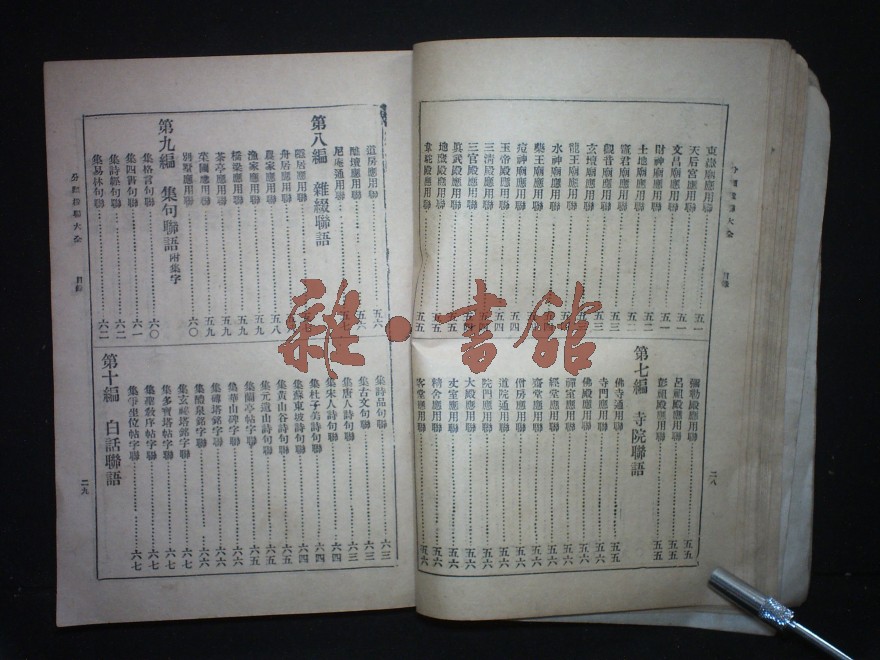 東嶽廟應用聯 五一
天后宮應用聯 五一
文昌廟應用聯 五一
財神廟應用聯 五一
土地廟應用聯 五二
竈君廟應用聯 五二
觀音廟應用聯 五三
玄壇廟應用聯 五三
龍王廟應用聯
水神廟應用聯 五四
藥王廟應用聯 五四
痘神廟應用聯 五四
玉帝殿應用聯 五四
三清殿應用聯 五四
三官殿應用聯 五四
眞武殿應用聯 五五
地藏殿應用聯 五五
韋馱殿應用聯 五五
彌勒殿應用聯 五五
呂祖殿應用聯 五五
彭祖殿應用聯 五五
第七編 寺院聯語
佛寺通用聯 五五
寺門應用聯 五六
佛殿應用聯 五六
禪室應用聯 五六
經堂應用聯 五六
齋堂應用聯 五六
僧房應用聯 五六
道院通用聯 五六
院門應用聯 五六
大殿應用聯 五六
丈室應用聯 五六
精舍應用聯 五六
客堂應用聯 五六
目錄
二八
道房應用聯 五六
醮壇應用聯
尼庵通用聯
第八編 雜綴聯語
隱居應用聯
舟居應用聯
農家應用聯 五八
漁家應用聯 五九
橋梁應用聯 五九
茶亭應用聯 五九
菜園應用聯 五九
別墅應用聯 六〇
第九編 集句聯語 附集字
集格言句聯 六〇
集四書句聯 六一
集詩經句聯 六二
集易林句聯 六二
集詩品句聯 六三
集古文句聯 六三
集唐人詩句聯 六三
集宋人詩句聯 六四
集杜子美詩句聯 六四
集蘇東坡詩句聯 六四
集黃山谷詩句聯 六五
集元遺山詩句聯 六五
集蘭亭帖字聯 六五
集華山碑字聯 六六
集磚塔銘字聯 六六
集醴泉銘字聯 六六
集玄祕塔銘字聯 六七
集多寶塔帖字聯 六七
集聖教序帖字聯 六七
集爭坐位帖字聯 六七
第十編 白話聯語
目錄
二九
雜·書館